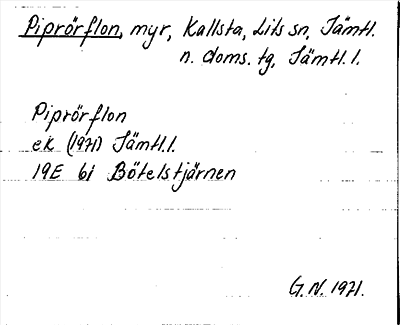 Piprörflon, myr, Kallsta, Lits sn, Jämtl.
n. doms. tg, Jämtl. l.
Piprörflon
ek (1971) Jämtl. l.
19E 6i Bötelstjärnen
G. N. 1971.